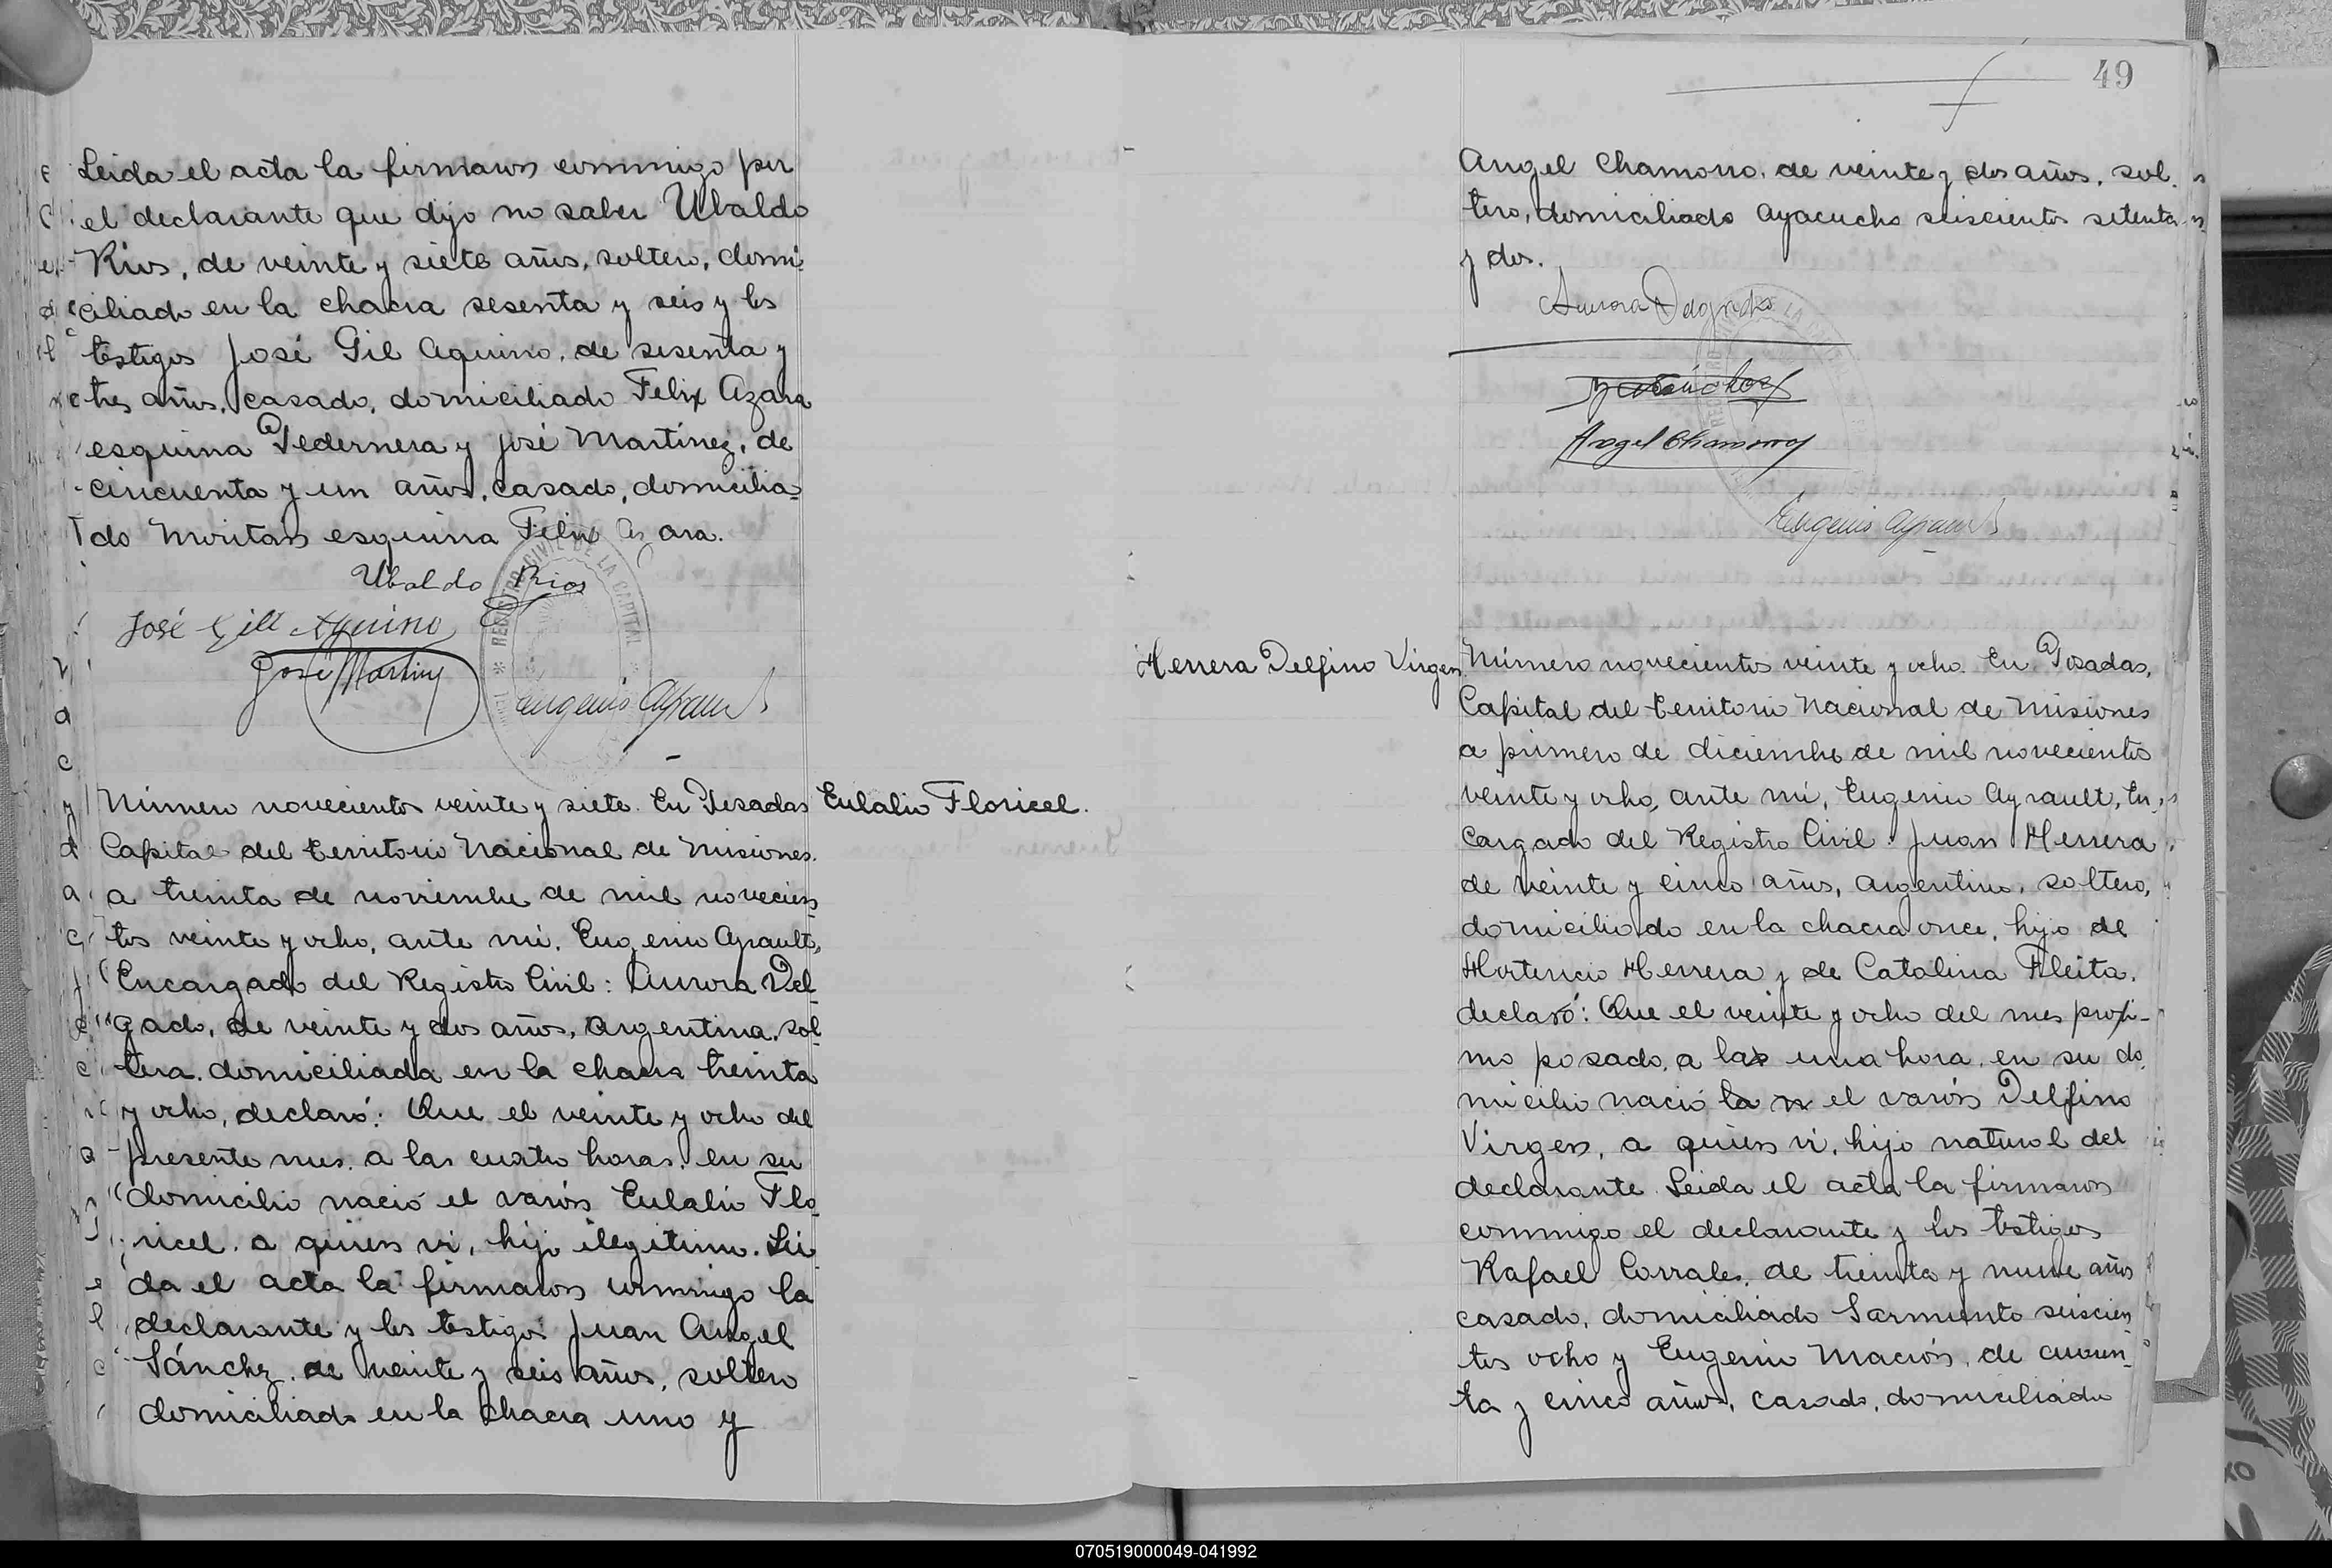 Leida el acta la firmaron conmigo por
el declarante que dijo no saber Ubaldo
Rios, de veinte y siete años, soltero, domi-
ciliado en la chacra sesenta y seis y los
testigos José Gil Aquino, de sesenta y
tres años, casado, domiciliado Felix Azara
esquina Pedernera y José Martínez, de
cincuenta y un años, casado, domicilia-
do Moritan esquina Felix Azara.
Ubaldo Rios
José Gill Aquino
José Martinez
Eugenio Ayrault
REGISTRO CIVIL DE LA CAPITAL
Número novecientos veinte y siete. En Posadas
Eulalio Floricel.
Capital del Territorio Nacional de Misiones.
a treinta de noviembre de mil novecien-
tos veinte y ocho, ante mi, Eugenio Ayrault,
Encargado del Registro Civil: Aurora Del-
gado, de veinte y dos años, argentina, sol-
tera, domiciliada en la chacra treinta
y ocho, declaró: Que el veinte y ocho del
presente mes, a las cuatro horas, en su
domicilio nació el varón Eulalio Flo-
ricel, a quien vi, hijo ilegitimo. Lei-
da el acta la firmaron conmigo la
declarante y los testigos Juan Angel
Sánchez, de veinte y seis años, soltero
domiciliado en la chacra uno y
49
Angel Chamorro, de veinte y dos años, sol-
tero, domiciliado Ayacucho seiscientos setenta
y dos.
Aurora Delgado
Sánchez
Angel Chamorro
Eugenio Ayrault
Herrera Delfino Virgen
Número novecientos veinte y ocho. En Posadas,
Capital del Territorio Nacional de Misiones
a primero de diciembre de mil novecientos
veinte y ocho, ante mi, Eugenio Ayrault, En-
cargado del Registro Civil: Juan Herrera
de veinte y cinco años, argentino, soltero,
domiciliado en la chacra once, hijo de
Hortencio Herrera y de Catalina Fleita,
declaró: Que el veinte y ocho del mes proxi-
mo pasado, a las una hora, en su do-
micilio nació la n el varón Delfino
Virgen, a quien vi, hijo natural del
declarante. Leida el acta la firmaron
conmigo el declarante y los testigos
Rafael Corrales, de treinta y nueve años
casado, domiciliado Sarmiento seiscien-
tos ocho y Eugenio Macion, de cuaren-
ta y cinco años, casado, domiciliado
070519000049-041992